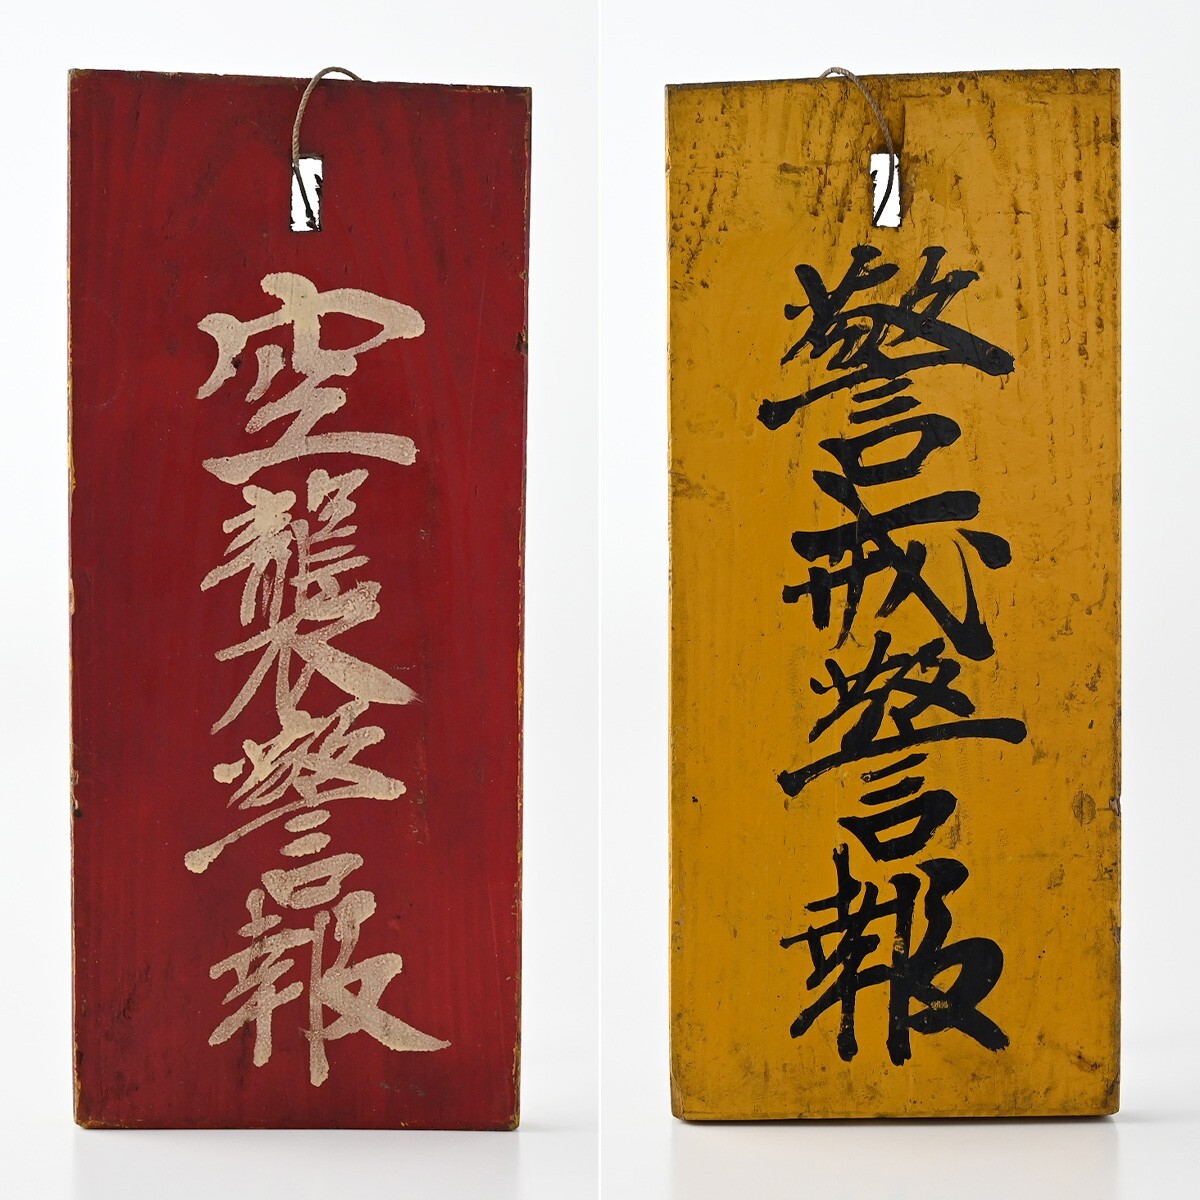 空襲警報
警戒警報